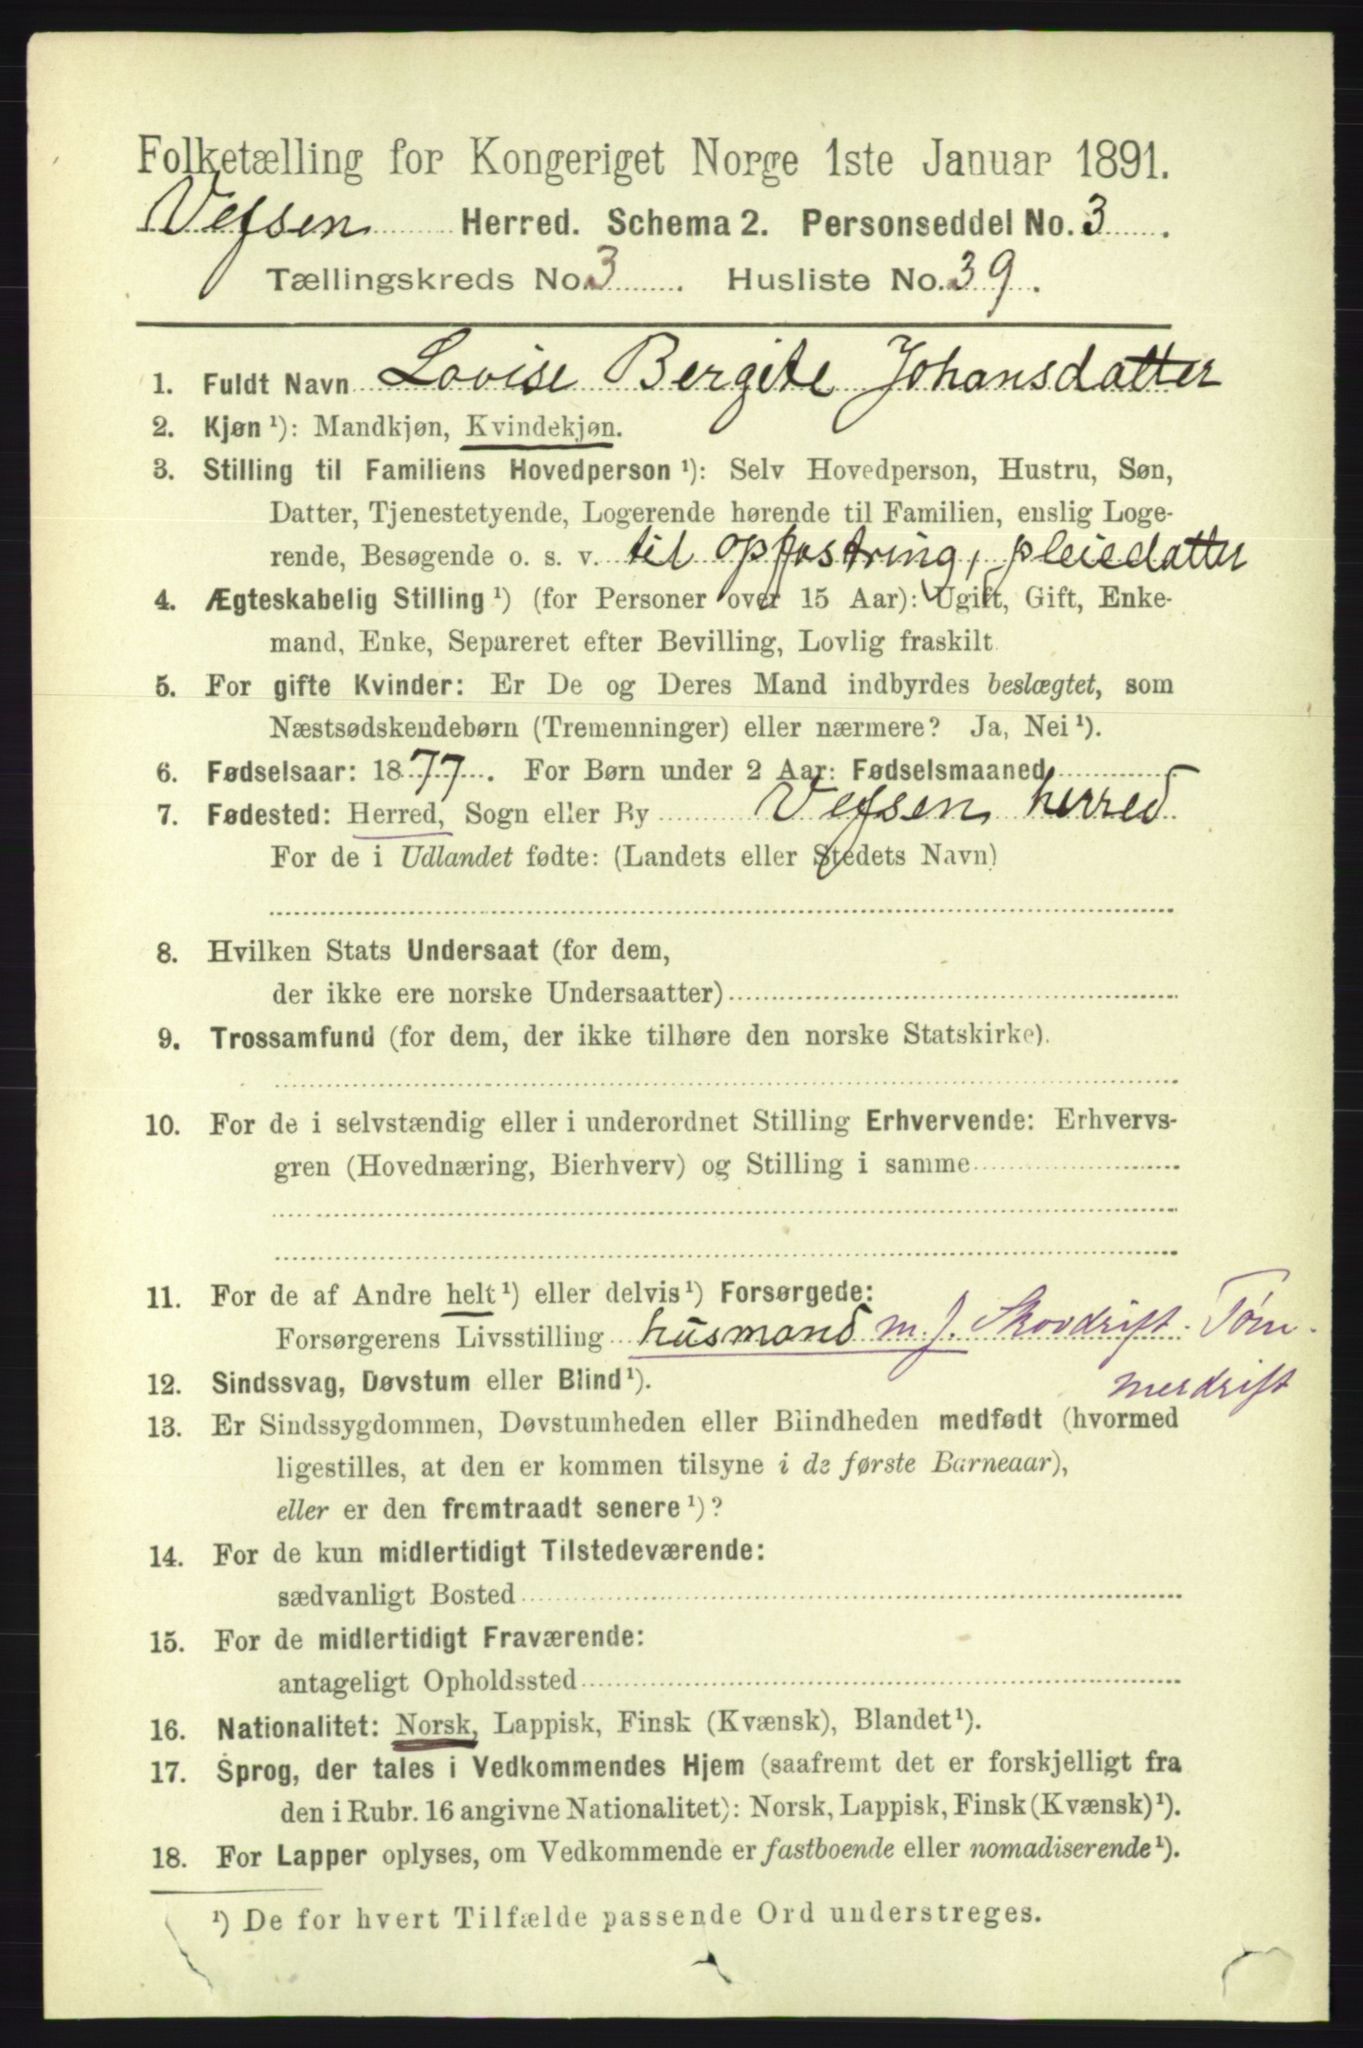 Folketælling for Kongeriget Norge 1ste Januar 1891.
Vefsen Herred. Schema 2. Personseddel No. 3.
Tællingskreds No. 3. Husliste No. 39.
1. Fuldt Navn Lovise Bergite Johansdatter
2. Kjøn ¹): Mandkjøn, Kvindekjøn.
3. Stilling til Familiens Hovedperson ¹): Selv Hovedperson, Hustru, Søn,
Datter, Tjenestetyende, Logerende hørende til Familien, enslig Loge-
rende, Besøgende o. s. v. til opfostring, pleiedatter
4. Ægteskabelig Stilling ¹) (for Personer over 15 Aar): Ugift, Gift, Enke-
mand, Enke, Separeret efter Bevilling, Lovlig fraskilt
5. For gifte Kvinder: Er De og Deres Mand indbyrdes beslægtet, som
Næstsødskendebørn (Tremenninger) eller nærmere? Ja, Nei ¹).
6. Fødselsaar: 1877. For Børn under 2 Aar: Fødselsmaaned
7. Fødested: Herred, Sogn eller By Vefsen herred
For de i Udlandet fødte: (Landets eller Stedets Navn)
8. Hvilken Stats Undersaat (for dem,
der ikke ere norske Undersaatter)
9. Trossamfund (for dem, der ikke tilhøre den norske Statskirke).
10. For de i selvstændig eller i underordnet Stilling Erhvervende: Erhvervs-
gren (Hovednæring, Bierhverv) og Stilling i samme
11. For de af Andre helt ¹) eller delvis ¹) Forsørgede:
Forsørgerens Livsstilling husmand m. j. Skovdrift. Tøm-
merdrift
12. Sindssvag, Døvstum eller Blind ¹).
13. Er Sindssygdommen, Døvstumheden eller Blindheden medfødt (hvormed
ligestilles, at den er kommen tilsyne i de første Barneaar),
eller er den fremtraadt senere ¹)?
14. For de kun midlertidigt Tilstedeværende:
sædvanligt Bosted
15. For de midlertidigt Fraværende:
antageligt Opholdssted
16. Nationalitet: Norsk, Lappisk, Finsk (Kvænsk), Blandet ¹).
17. Sprog, der tales i Vedkommendes Hjem (saafremt det er forskjelligt fra
den i Rubr. 16 angivne Nationalitet): Norsk, Lappisk, Finsk (Kvænsk) ¹).
18. For Lapper oplyses, om Vedkommende er fastboende eller nomadiserende ¹).
¹) De for hvert Tilfælde passende Ord understreges.